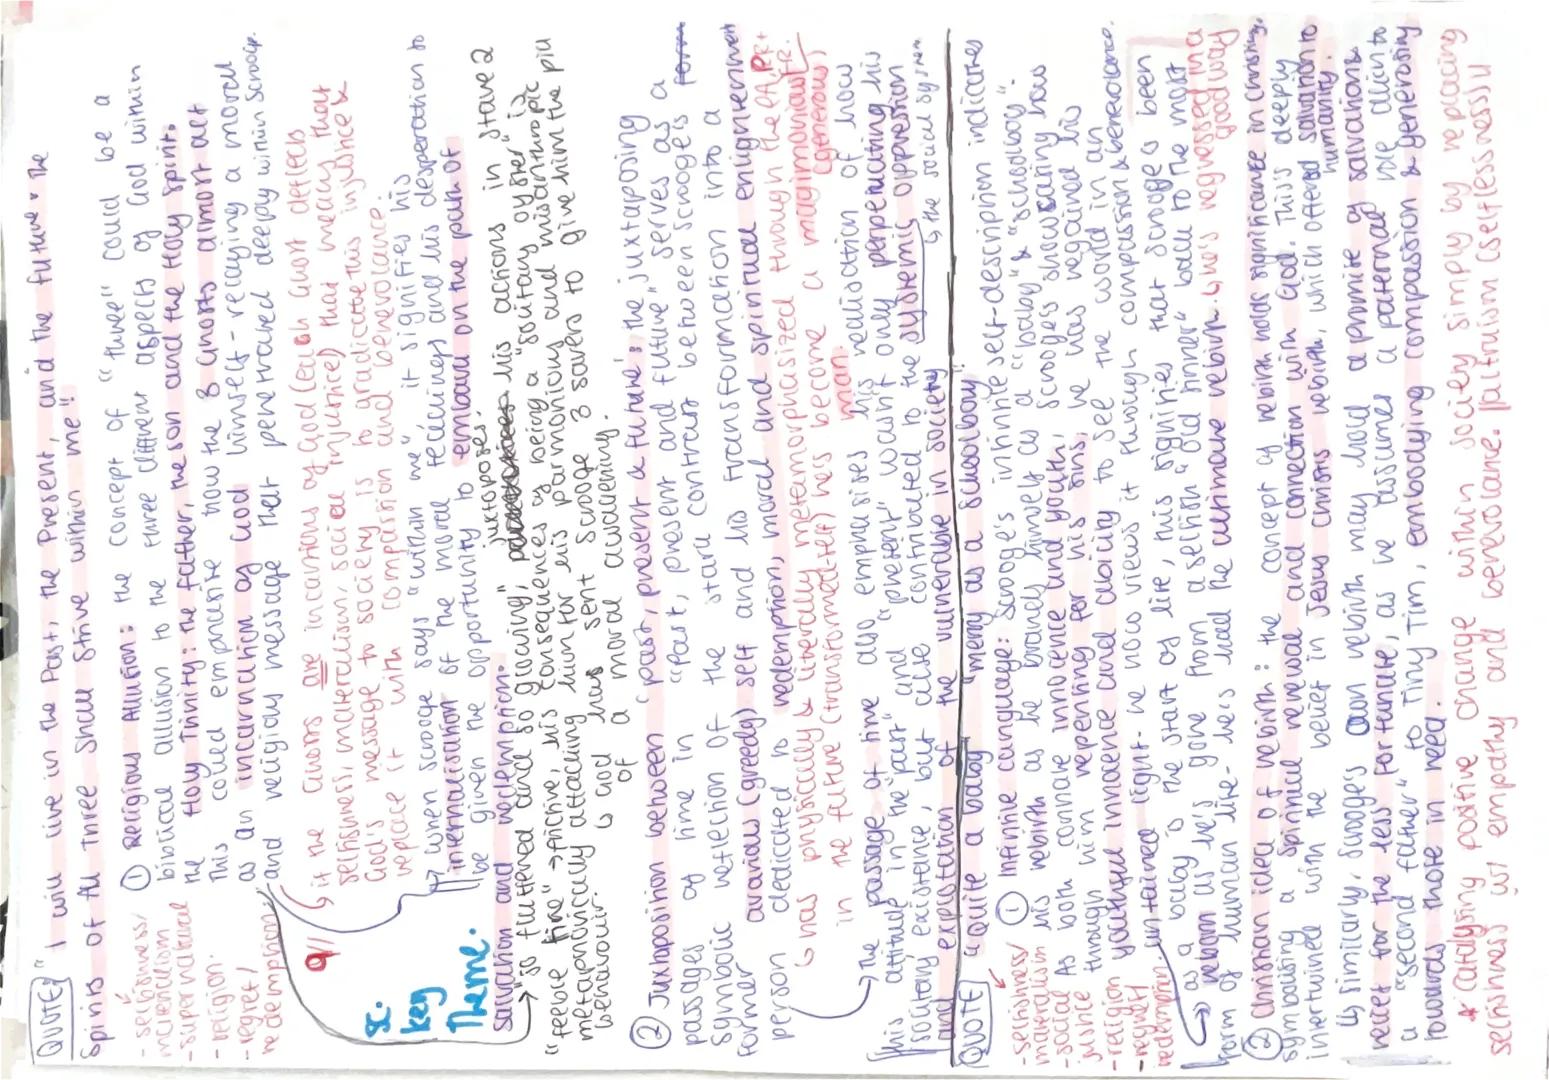 QUOTE "I will live in the Past, the Present, and the future. The
Spirits of all three shall strive within me!"
- selfishness/
materialism
- supernatural
- religion.
- regret/
redemption
① Religious Allusion: the concept of "three" could be a
biblical allusion to the three different aspects of God within
the Holy Trinity: the father, the son and the Holy Spirit.
This could emphasise how the 3 Ghosts almost act
as an incarnation of God himself - relaying a moral
and religious message that penetrated deeply within Scrooge.
↳ if the Ghosts are incarnations of God (each Ghost defects
selfishness, materialism, social injustice) that means that
God's message to society is to eradicate this injustice &
replace it with compassion and benevolance
9//
SC.
key
Theme.
→ when scrooge says "within me" it signifies his
internalisation of the moral teachings and his desperation to
be given the opportunity to embark on the path of
salvation and redemption.
juxtaposes
→ "so fluttered and so glowing", his actions in stave 2
"feeble fire" → fictive, his consequences of being a "solitary oyster" is
metaphorically attacking him for his parmonious and misanthropic
behaviour. ↳ God has sent Scrooge 3 savers to give him the pill
of a moral awakening.
② Juxtaposition between "past, present & future": the juxtaposing
passages of time in "Past, present and future" serves as a
symbolic reflection of the stark contrast between Scrooge's
former avarious (greedy) self and his transformation into a
person dedicated to redemption, moral and spiritual enlightenment
↳ has physically & literally metamorphasized through the PA, PR +
in the future (transformed - itself) he's become a magnanimous FR.
(generous)
man.
→ The passage of time also emphasises his realisation of how
his attitude in the "past" and "present" wasn't only perpetuating his
solitary existence, but also contributed to the systemic oppression
and exploitation of the vulnerable in society ↳ the social system
QUOTE "quite a baby" "merry as a schoolboy"
- selfishness/
materialism
- social
- religion
- regret/
redemption.
① Infinite language: Scrooge's infinite self-description indicates
his rebirth as he brands himself as a "baby" & "schoolboy"
As both connote innocence and youth, Scrooge's showcasing how
through him repenting for his sins, he has regained his
youthful innocence and alacrity to see the world in an
untainted light - he now views it through compassion & benevolance.
→ as a baby is the start of life, this signifies that scrooge's been
reborn as he's gone from a selfish "old sinner" back to the most
form of human life - he's had the ultimate rebirth. ↳ he's regressed in a
good way
② Christian idea of rebirth: the concept of rebirth holds significance in christianity,
symbolising a spiritual renewal and connection with God. This deeply
intertwined with the belief in Jesus Christ's rebirth, which offered salvation to
humanity.
↳ Similarly, Scrooge's own rebirth may hold a promise of salvation &
relief for the less fortunate, as he assumes a paternal role akin to
a "second father" to Tiny Tim, embodying compassion & generosity
towards those in need.
* Catalysing positive change within society simply by replacing
selfishness w/ empathy and benevolance. [altruism (selflessness)]